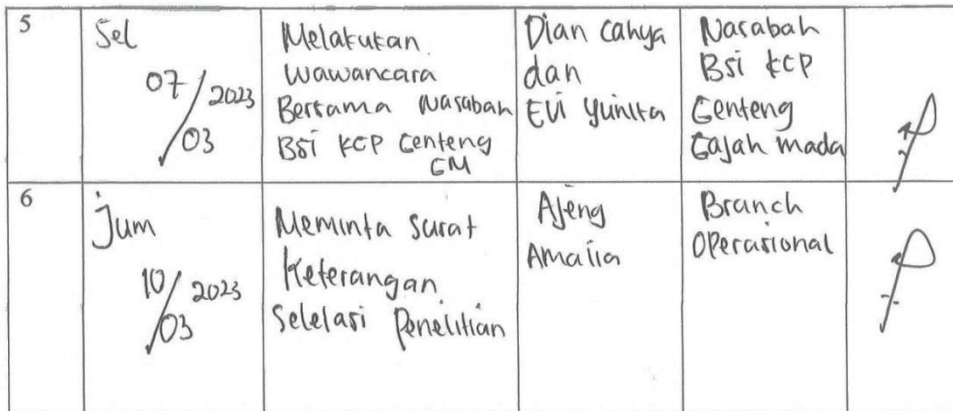 5
Sel
07/03 2023
Melakukan
wawancara
Bersama Nasabah
BSi KCP Genteng
GM
Dian Cahya
dan
EVi Yunita
Nasabah
BSi KCP
Genteng
Gajah mada
6
Jum
10/03 2023
Meminta Surat
Keterangan
Selelasi Penelitian
Ajeng
Amalia
Branch
Operasional